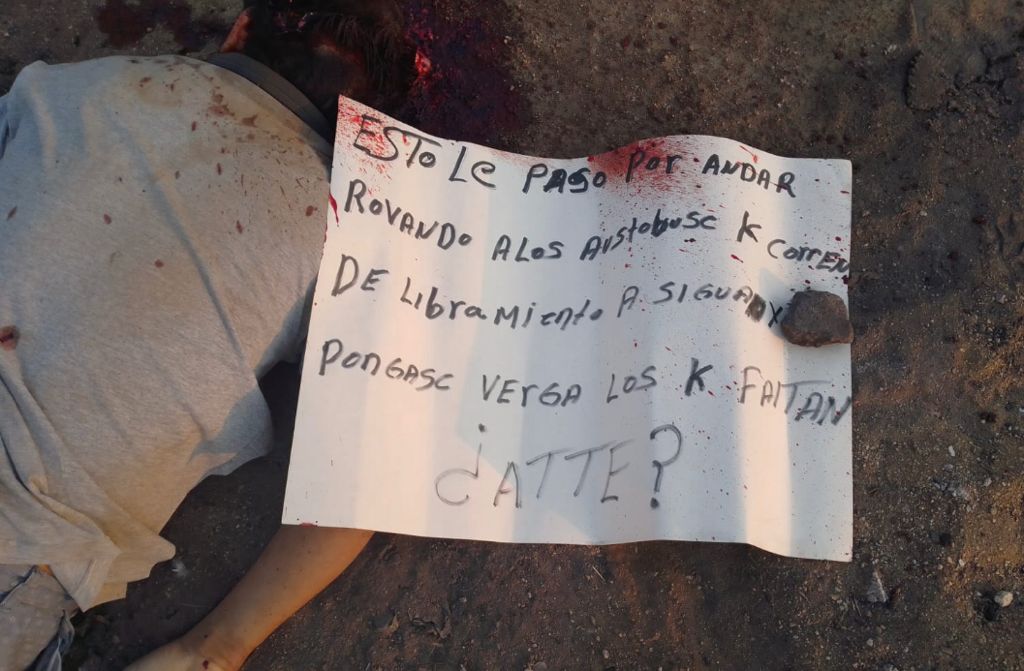 ESTO LE PASO POR ANDAR
ROVANDO A LOS AUSTOBUSE K CORREN
DE LIBRAMIENTO A SIGUA
PONGASE VERGA LOS K FALTAN
¿ATTE?